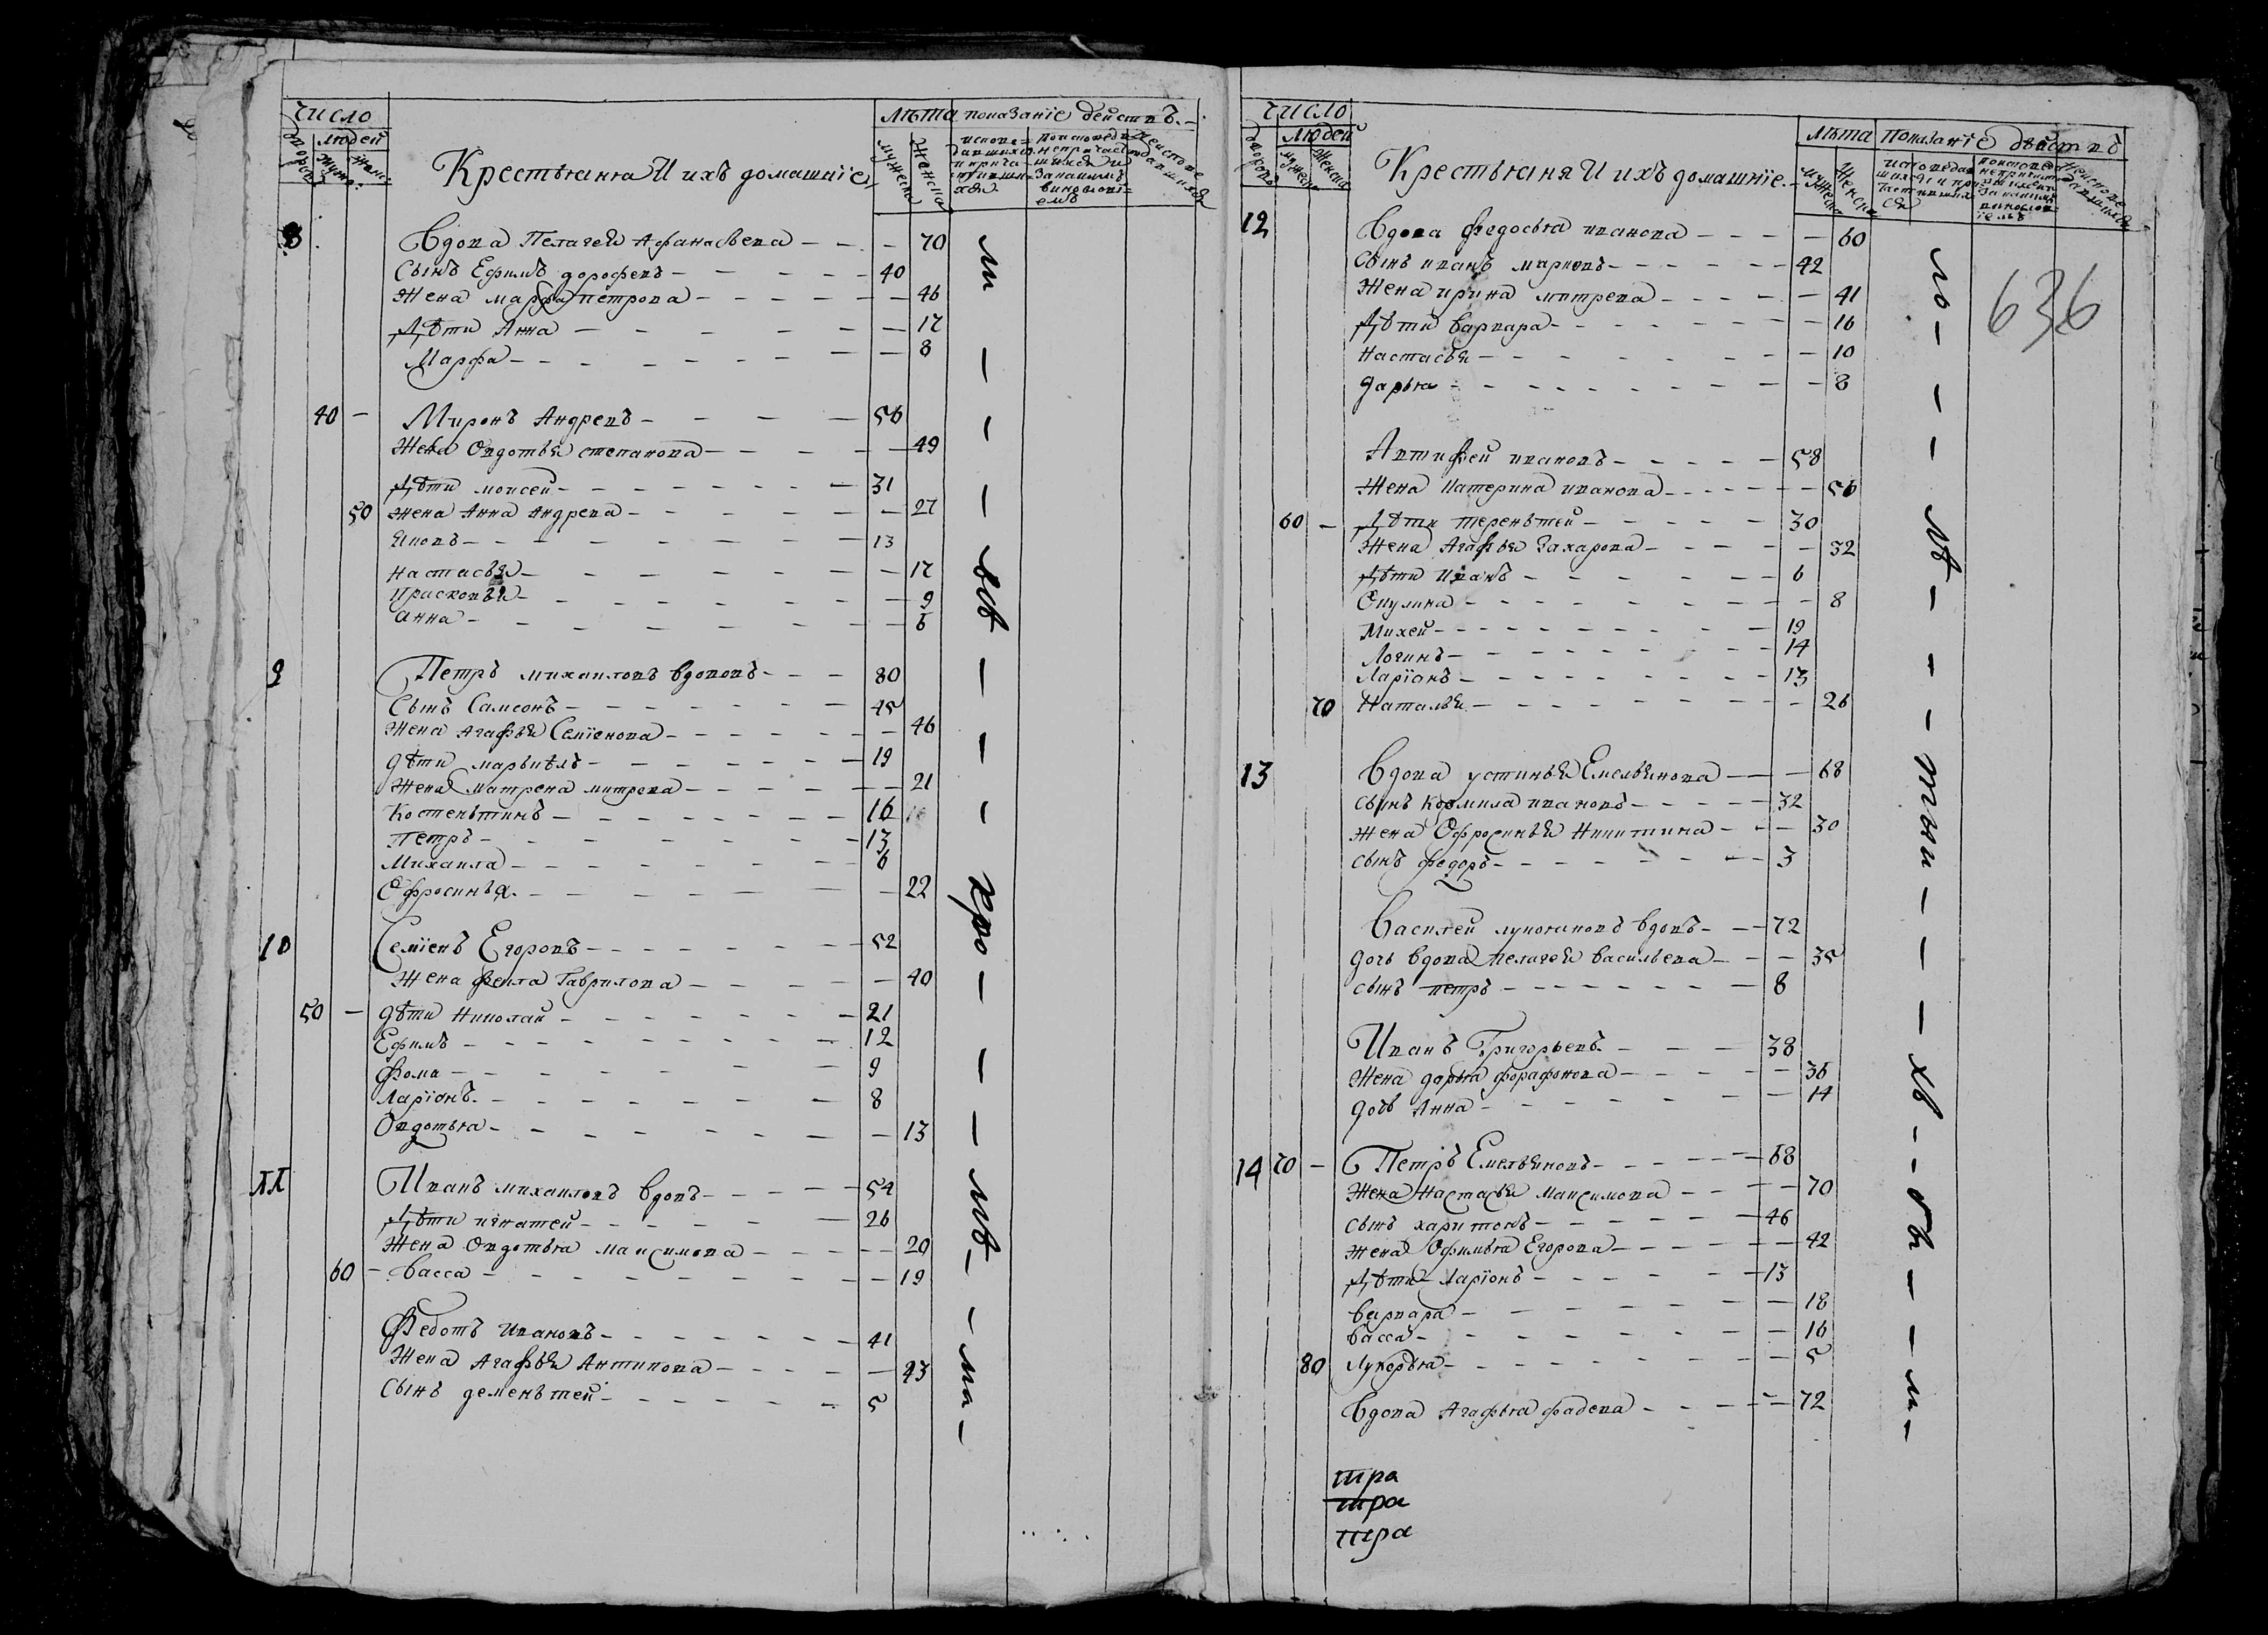 число
дворовъ
людей
мужс.
женс.
Крестьяня И ихъ домашнїе
лѣта
мужеска
женска
показанїе действъ.
8.
Вдова Пелагея Афанасьева - - - - 70
Сынъ Ефимъ дорофевъ - - - - - 40
Жена марфа петрова - - - - - - 46
Дѣти Анна - - - - - - - 17
Марфа - - - - - - - - 8
40 - Миронъ Андревъ - - - - 56
Жена Овдотья степанова - - - - - 49
Дѣти моисей - - - - - - - 31
50 жена Анна Андрева - - - - - - 27
Яковъ - - - - - - - - 13
настасья - - - - - - - - 17
прасковья - - - - - - - - 9
анна - - - - - - - - 6
9 Петръ михаиловъ вдововъ - - - 80
Сынъ Самсонъ - - - - - - - 45
Жена Агафья Семїонова - - - - - - 46
дѣти маркелъ - - - - - - - 19
Жена матрена митрева - - - - - - 21
Костеньтинъ - - - - - - - 16
Петръ - - - - - - - - 13
Михаила - - - - - - - - 6
Офросинья - - - - - - - 22
10 Семїенъ Егоровъ - - - - - - - 52
Жена фекла Гаврилова - - - - - 40
50 - дѣти Николай - - - - - - - 21
Ефимъ - - - - - - - - 12
фома - - - - - - - 9
Ларїонъ - - - - - - - 8
Овдотья - - - - - - - - 13
11 Иванъ михаиловъ вдовъ - - - - - 54
Дѣти игнатей - - - - - - 26
Жена Овдотья максимова - - - - - 20
60 - васса - - - - - - - - - 19
Федотъ Ивановъ - - - - - - - 41
Жена Агафья Антипова - - - - - 43
Сынъ дементей - - - - - - 5
число
дворовъ
людей
мужеска
женска
Крестьяня И ихъ домашнїе.
лѣта
мужеска
женска
показанїе дѣйствъ
636
12
Вдова федосья иванова - - - - - 60
Сынъ иванъ марковъ - - - - - - 42
Жена ирина митрева - - - - - 41
Дѣти варвара - - - - - - - 16
настасья - - - - - - - - 10
дарья - - - - - - - - - 8
Автифей ивановъ - - - - - 58
Жена катерина иванова - - - - - - 56
60 - Дѣти тереньтей - - - - - 30
Жена Агафья Захарова - - - - - 32
Дѣти Иванъ - - - - - - - 6
Окулина - - - - - - - - 8
Михей - - - - - - - - - 19
Логинъ - - - - - - - - 14
Ларїонъ - - - - - - - - 13
70 Наталья - - - - - - - - 26
13 Вдова устинья Емельянова - - - 68
сынъ кормила ивановъ - - - - - 32
жена Офросинья Никитина - - - 30
сынъ федоръ - - - - - - - 3
Василей лукояновъ вдовъ - - - 72
дочь вдова пелагея васильева - - - 35
сынъ петръ - - - - - - - - 8
Иванъ Григорьевъ - - - - 38
жена дарья форафонова - - - - - 36
дочь Анна - - - - - - - 14
14 70 - Петръ Емельяновъ - - - - - 68
Жена Настасья Максимова - - - - 70
сынъ харитонъ - - - - - - 46
жена Офимья Егорова - - - - - - 42
Дѣти Ларїонъ - - - - - - 13
варвара - - - - - - - 18
васса - - - - - - - - 16
80 Лукерья - - - - - - - - 5
Вдова Агафья фадева - - - - - 72
тра
тра
тра